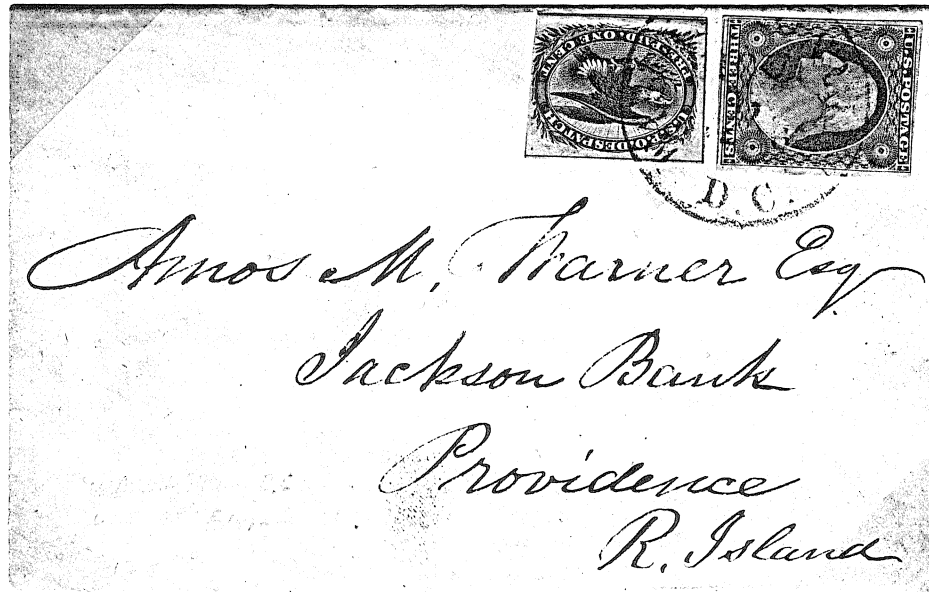 U.S.P.O. DESPATCH
PRE-PAID ONE CENT
U.S. POSTAGE
THREE CENTS
D.C.
Amos M. Warner Esq
Jackson Bank
Providence
R. Island